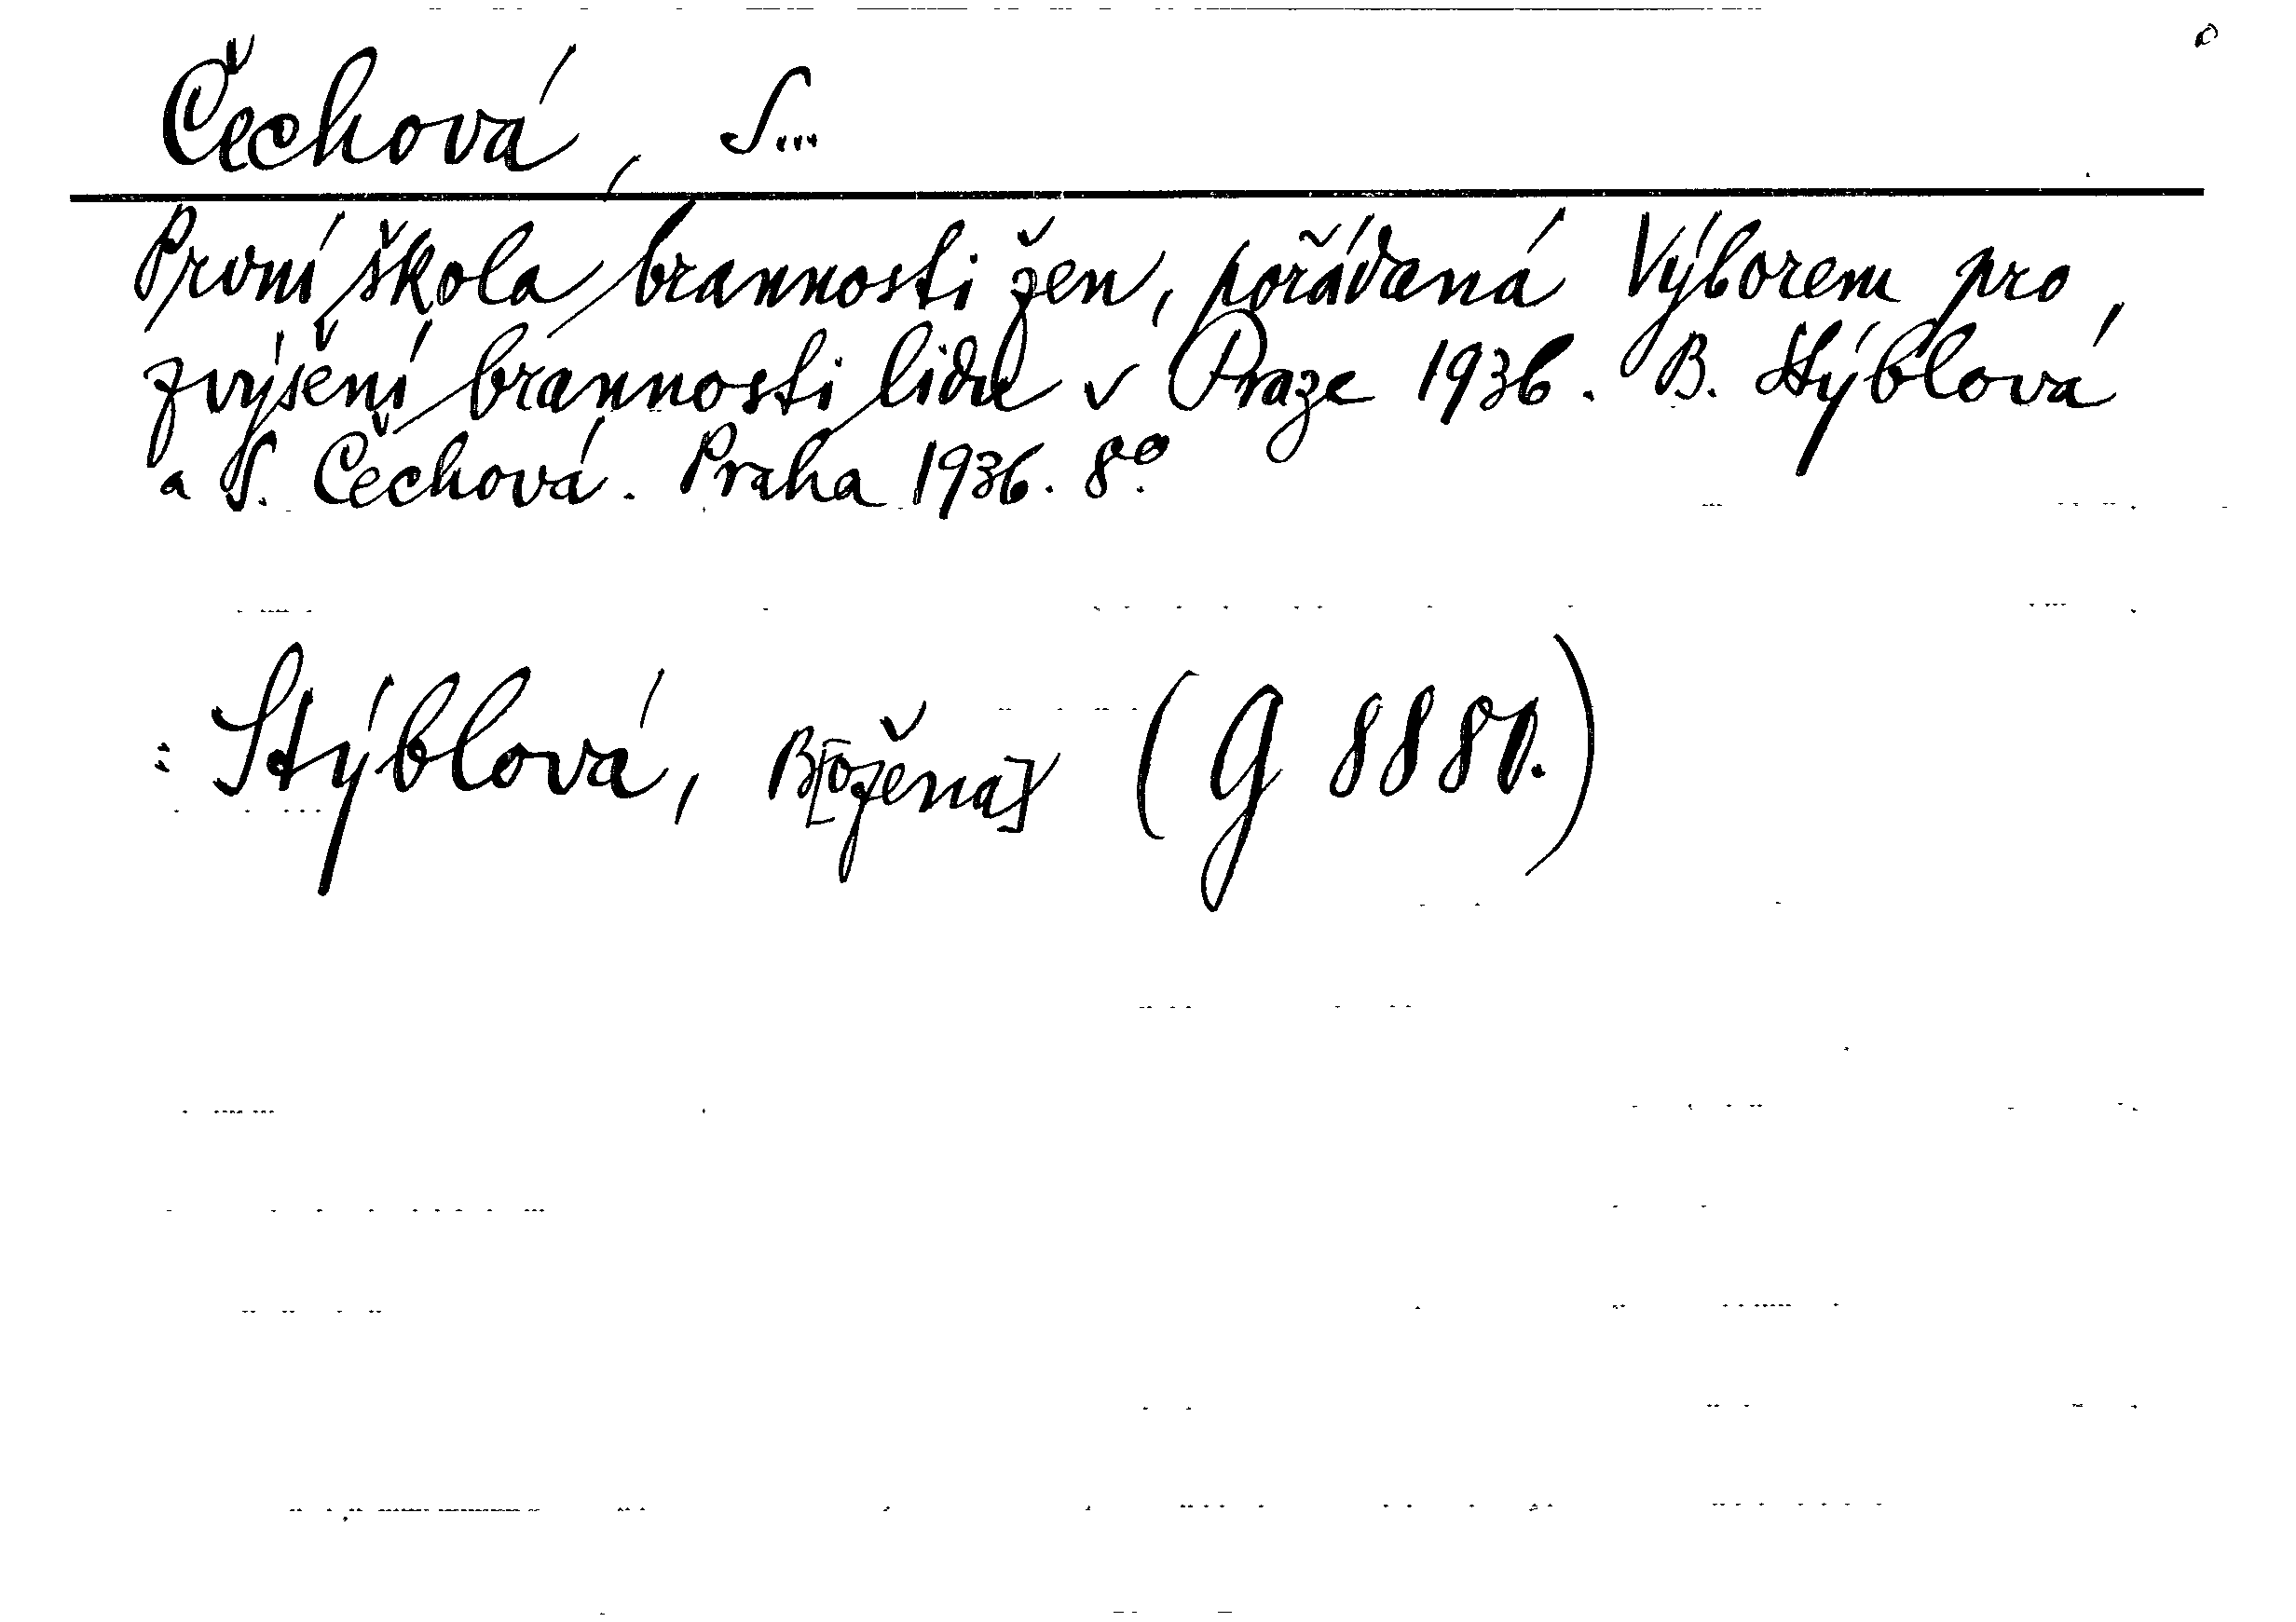 Čechová, S...
První škola brannosti žen, pořádaná Výborem pro
zvýšení brannosti lidu v Praze 1936. B. Stýblová
a S. Čechová. Praha 1936. 8°.
: Stýblová, B[ožena] (G 8880.)